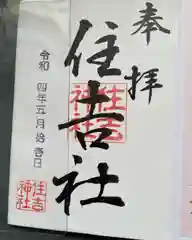 奉拝
住吉社
住吉
神社
令和四年五月拾壱日
住吉
神社